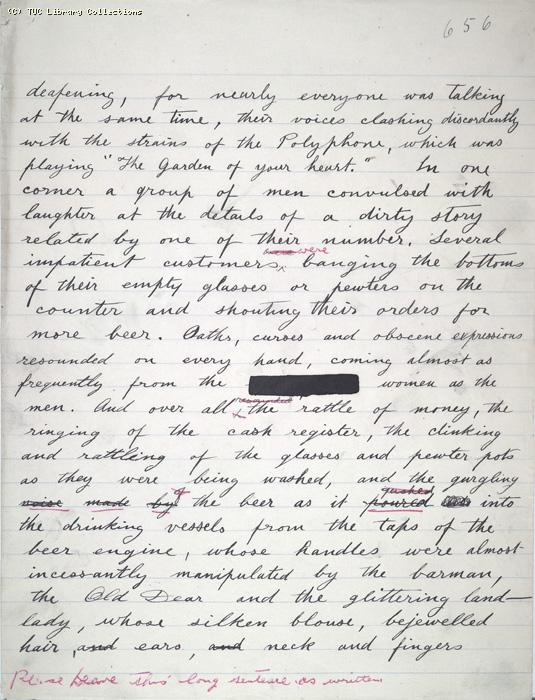 (C) TUC Library Collections
656
deafening, for nearly everyone was talking
at the same time, their voices clashing discordantly
with the strains of the Polyphone, which was
playing "The Garden of your heart." In one
corner a group of men convulsed with
laughter at the details of a dirty story
related by one of their number. Several
were
impatient customers banging the bottoms
of their empty glasses or pewters on the
counter and shouting their orders for
more beer. Oaths, curses and obscene expressions
resounded on every hand, coming almost as
frequently from the women as the
resounded
men. And over all the rattle of money, the
ringing of the cash register, the clinking
and rattling of the glasses and pewter pots
as they were being washed, and the gurgling
of gushed
noise made by the beer as it poured into
the drinking vessels from the taps of the
beer engine, whose handles were almost
incessantly manipulated by the barman,
the Old Dear and the glittering land-
lady, whose silken blouse, bejewelled
hair, and ears, and neck and fingers
Please leave this long sentence as written